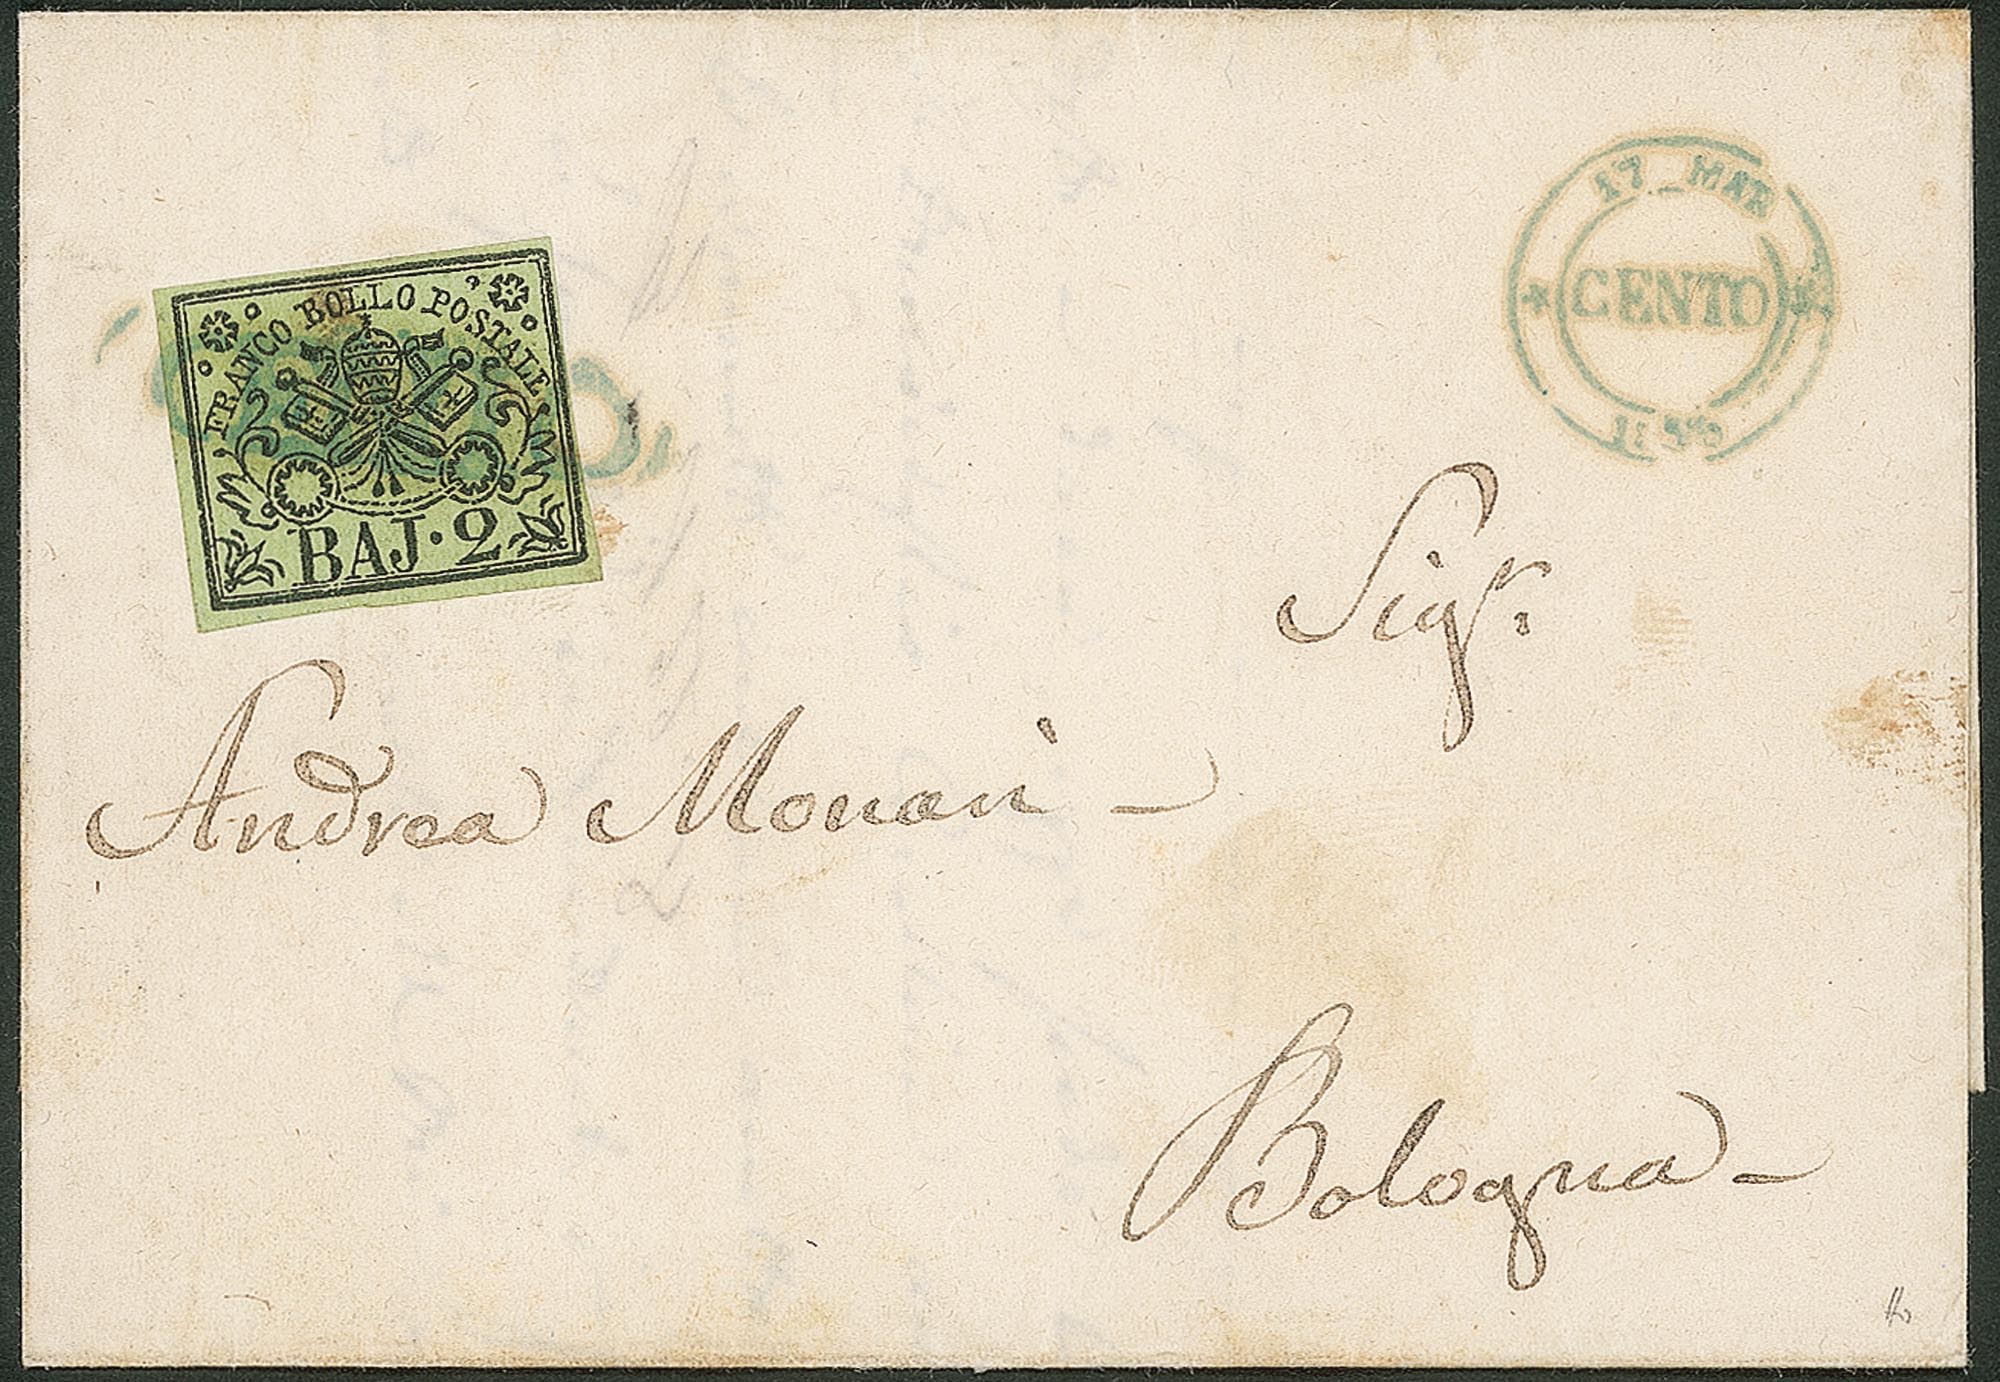 FRANCO BOLLO POSTALE
BAJ·2
17_MAR
CENTO
Sigr.
Andrea Monari -
Bologna -